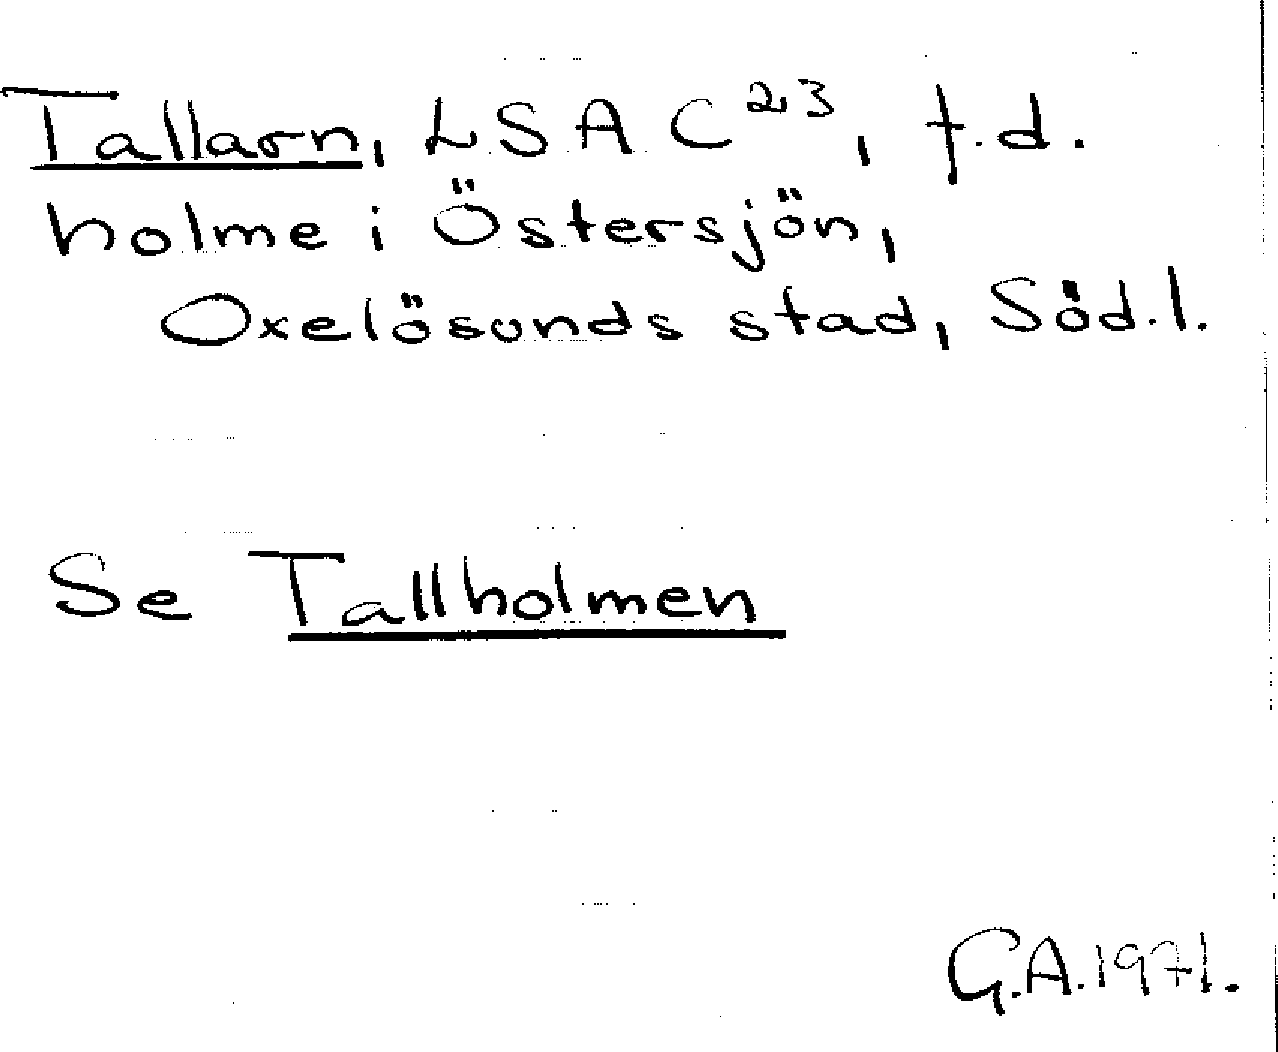 Tallarn, LSA C²³, f.d.
holme i Östersjön,
Oxelösunds stad, Söd.l.
Se Tallholmen
G.A.1971.